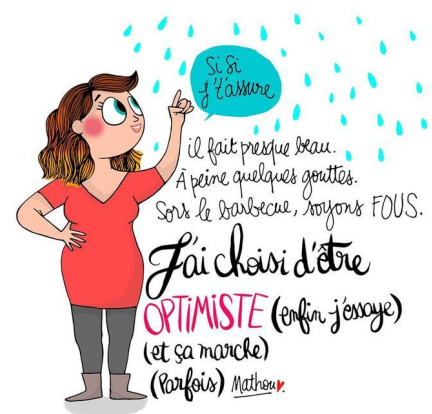 Si Si
j't'assure
il fait presque beau.
À peine quelques gouttes.
Sors le barbecue, soyons FOUS.
J'ai choisi d'être
OPTIMISTE (enfin j'essaye)
(et ça marche)
(Parfois) Mathou